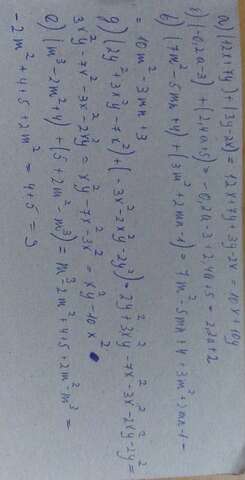 а) (12x+7y)+(3y-2x)=12x+7y+3y-2x=10x+10y
б) (-0,2a-3)+(2,4a+5)=-0,2a-3+2,4a+5=2,2a+2
в) (7m²-5mn+4)+(3m²+2mn-1)=7m²-5mn+4+3m²+2mn-1=
=10m²-3mn+3
д) (2y²+3xy-7x²)+(-3x²-2xy-2y²)=2y²+3xy-7x²-3x²-2xy-2y²=
3xy-7x²-3x²-2xy=xy-7x²-3x²=xy-10x²
е) (m³-2m²+4)+(5+2m²-m³)=m³-2m²+4+5+2m²-m³=
-2m²+4+5+2m²=4+5=9